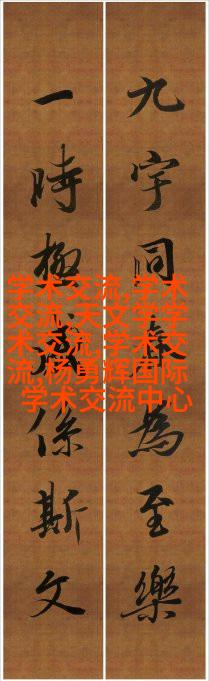 九宇同為至樂
一時極盛係斯文
学术交流,学术
交流,天文学学
术交流,学术交
流,杨勇辉国际
学术交流中心